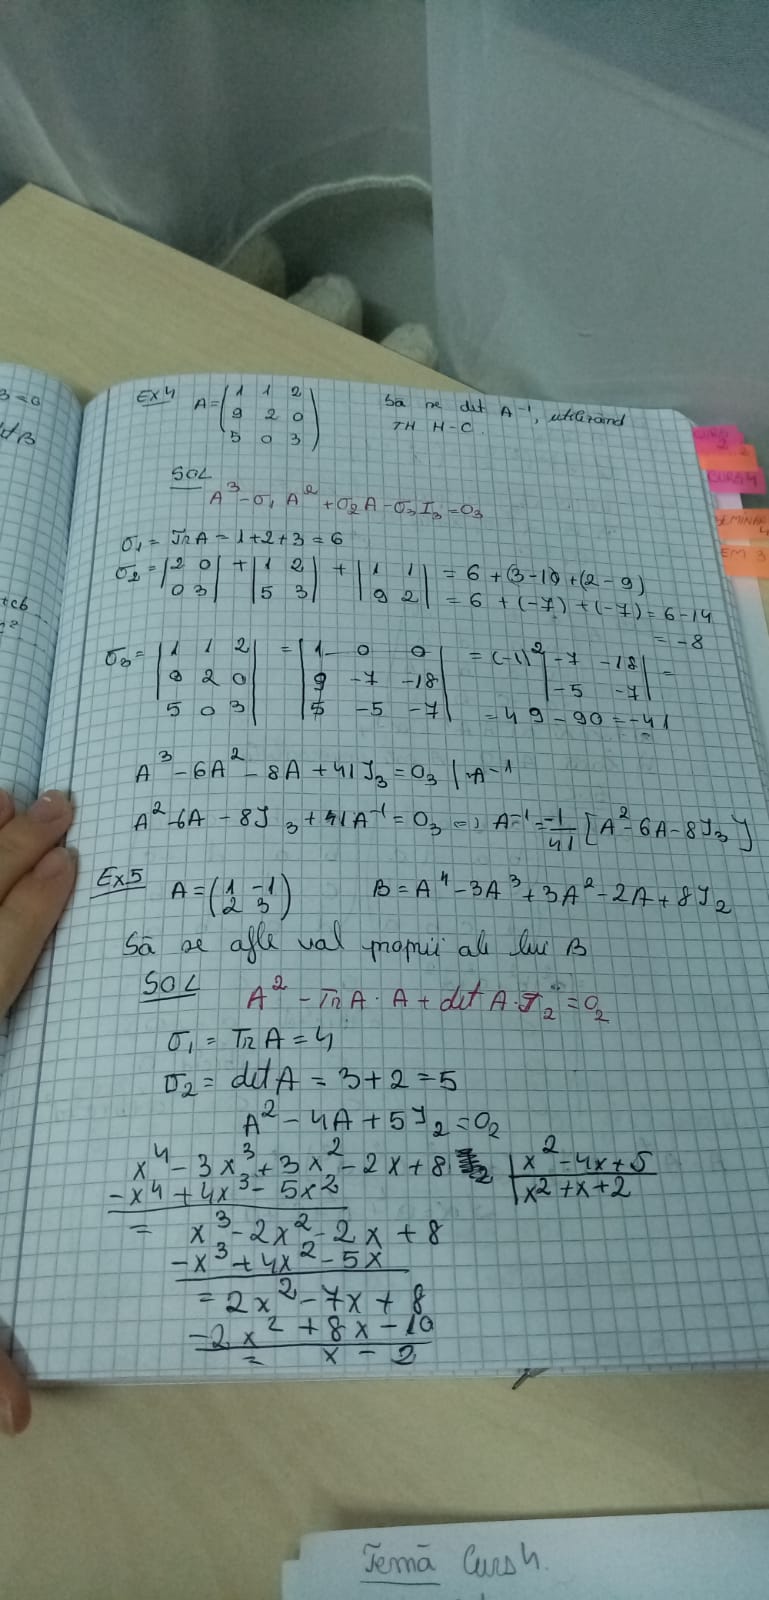 3=0
Ex4 A=(1 1 2 Să se det A⁻¹, utilizând
9 2 0 TH H-C.
5 0 3)
SOL
A³-σ₁A²+σ₂A-σ₃I₃=O₃
σ₁=TrA=1+2+3=6
σ₂=|2 0; 0 3|+|1 2; 5 3|+|1 1; 9 2|=6+(3-10)+(2-9)
=6+(-7)+(-7)=6-14
=-8
σ₃=|1 1 2; 9 2 0; 5 0 3|=|1 0 0; 9 -7 -18; 5 -5 -7|=(-1)²|-7 -18; -5 -7|=
=49-90=-41
A³-6A²-8A+41I₃=O₃ |·A⁻¹
A²-6A-8I₃+41A⁻¹=O₃=>A⁻¹=-1/41[A²-6A-8I₃]
Ex5 A=(1 -1; 2 3) B=A⁴-3A³+3A²-2A+8I₂
Să se afle val proprii ale lui B
SOL A²-TrA·A+detA·I₂=O₂
σ₁=TrA=4
σ₂=detA=3+2=5
A²-4A+5I₂=O₂
x⁴-3x³+3x²-2x+8 |x²-4x+5
-x⁴+4x³-5x² |x²+x+2
= x³-2x²-2x+8
-x³+4x²-5x
= 2x²-7x+8
-2x²+8x-10
= x-2
CURS 2
CURS 4
SEMINAR 4
SEM 3
Temă Curs 4.